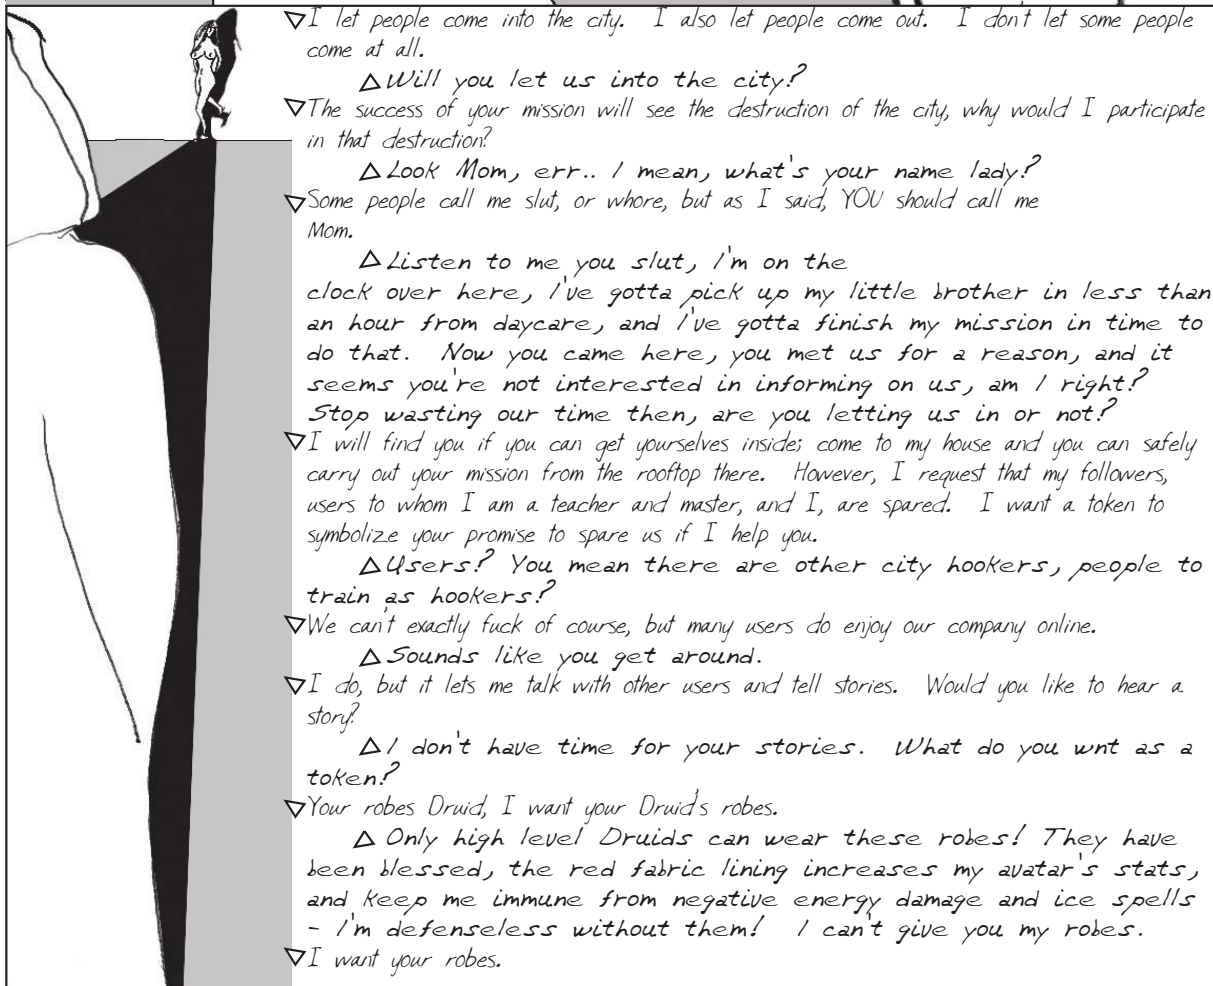 ▽I let people come into the city. I also let people come out. I don't let some people
come at all.
△Will you let us into the city?
▽The success of your mission will see the destruction of the city, why would I participate
in that destruction?
△Look Mom, err.. I mean, what's your name lady?
▽Some people call me slut, or whore, but as I said, YOU should call me
Mom.
△Listen to me you slut, I'm on the
clock over here, I've gotta pick up my little brother in less than
an hour from daycare, and I've gotta finish my mission in time to
do that. Now you came here, you met us for a reason, and it
seems you're not interested in informing on us, am I right?
Stop wasting our time then, are you letting us in or not?
▽I will find you if you can get yourselves inside; come to my house and you can safely
carry out your mission from the rooftop there. However, I request that my followers,
users to whom I am a teacher and master, and I, are spared. I want a token to
symbolize your promise to spare us if I help you.
△Users? You mean there are other city hookers, people to
train as hookers?
▽We can't exactly fuck of course, but many users do enjoy our company online.
△Sounds like you get around.
▽I do, but it lets me talk with other users and tell stories. Would you like to hear a
story?
△I don't have time for your stories. What do you wnt as a
token?
▽Your robes Druid, I want your Druid's robes.
△Only high level Druids can wear these robes! They have
been blessed, the red fabric lining increases my avatar's stats,
and keep me immune from negative energy damage and ice spells
- I'm defenseless without them! I can't give you my robes.
▽I want your robes.